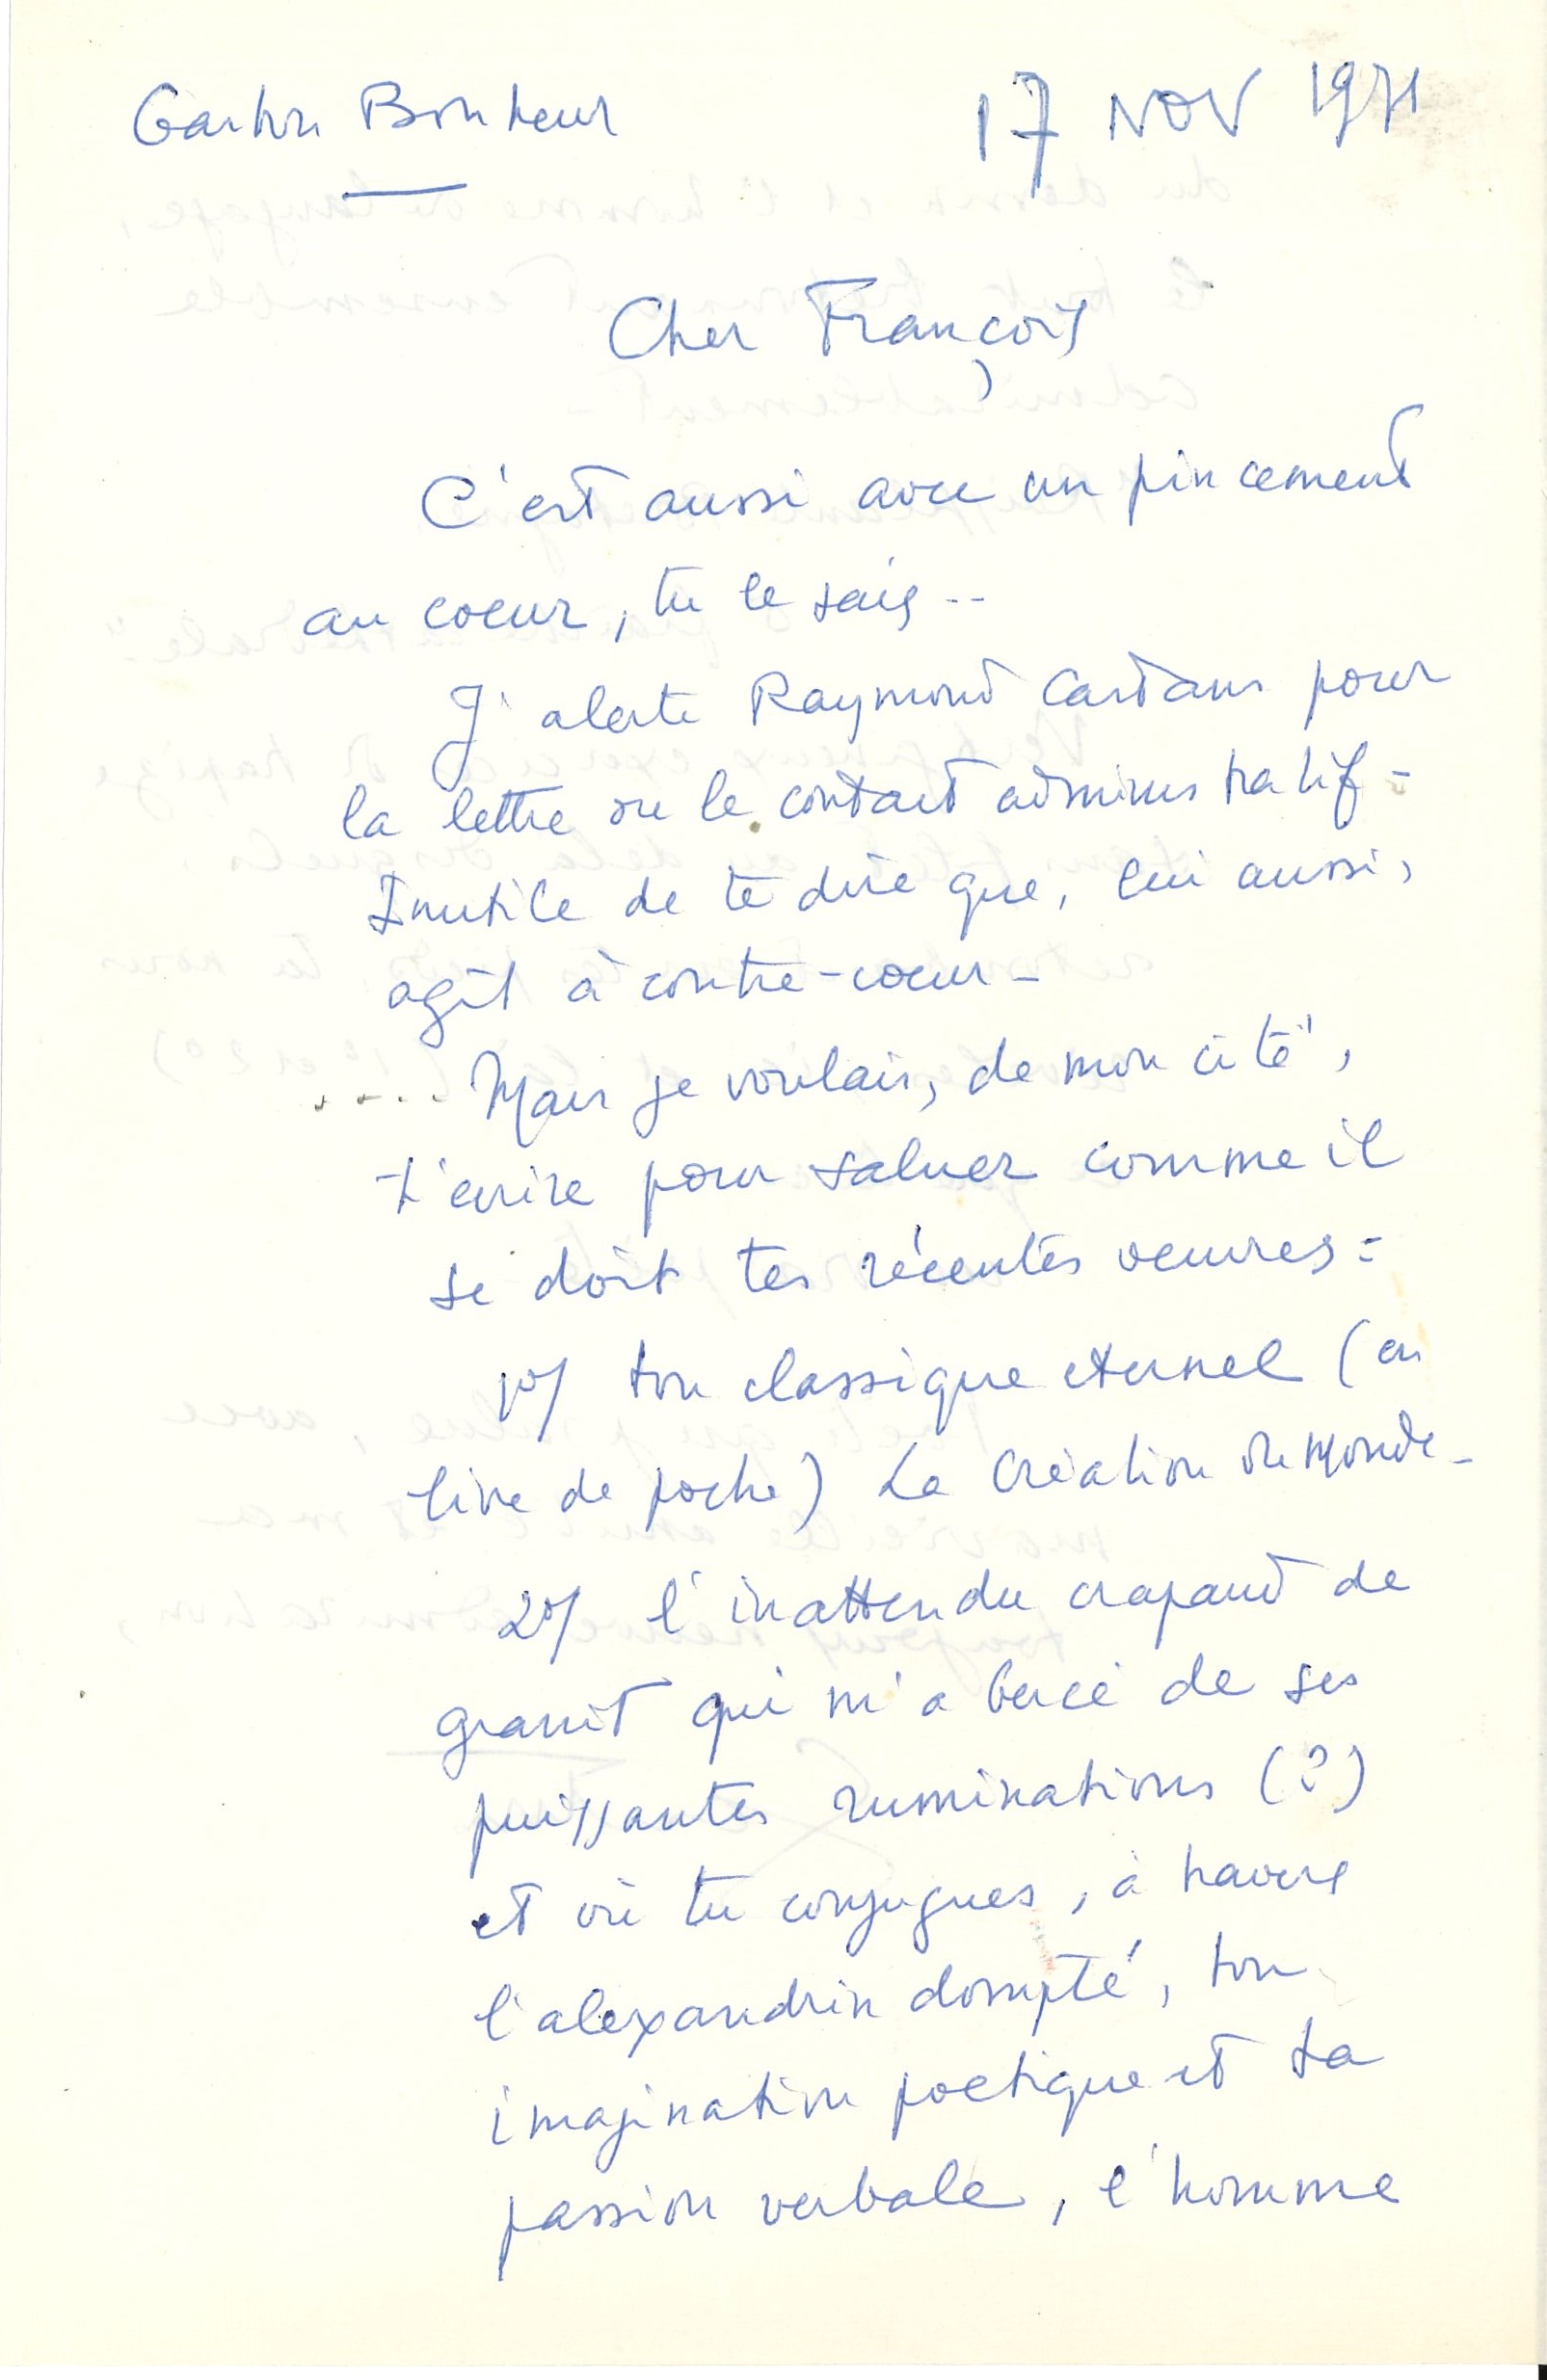 Gaston Bonheur
17 NOV 1971
Cher François,
C'est aussi avec un pincement
au coeur, tu le sais --
J'alerte Raymond Castans pour
la lettre ou le contact administratif -
Inutile de te dire que, lui aussi,
agit à contre-coeur -
.... Mais je voulais, de mon côté,
t'écrire pour saluer comme il
se doit tes récentes oeuvres :
1°/ ton classique eternel (en
livre de poche) La Création du Monde -
2°/ l'inattendu crapaud de
granit qui m'a bercé de ses
puissantes ruminations (?)
et où tu conjugues, à travers
l'alexandrin dompté, ton
imagination poetique et ta
passion verbale, l'homme